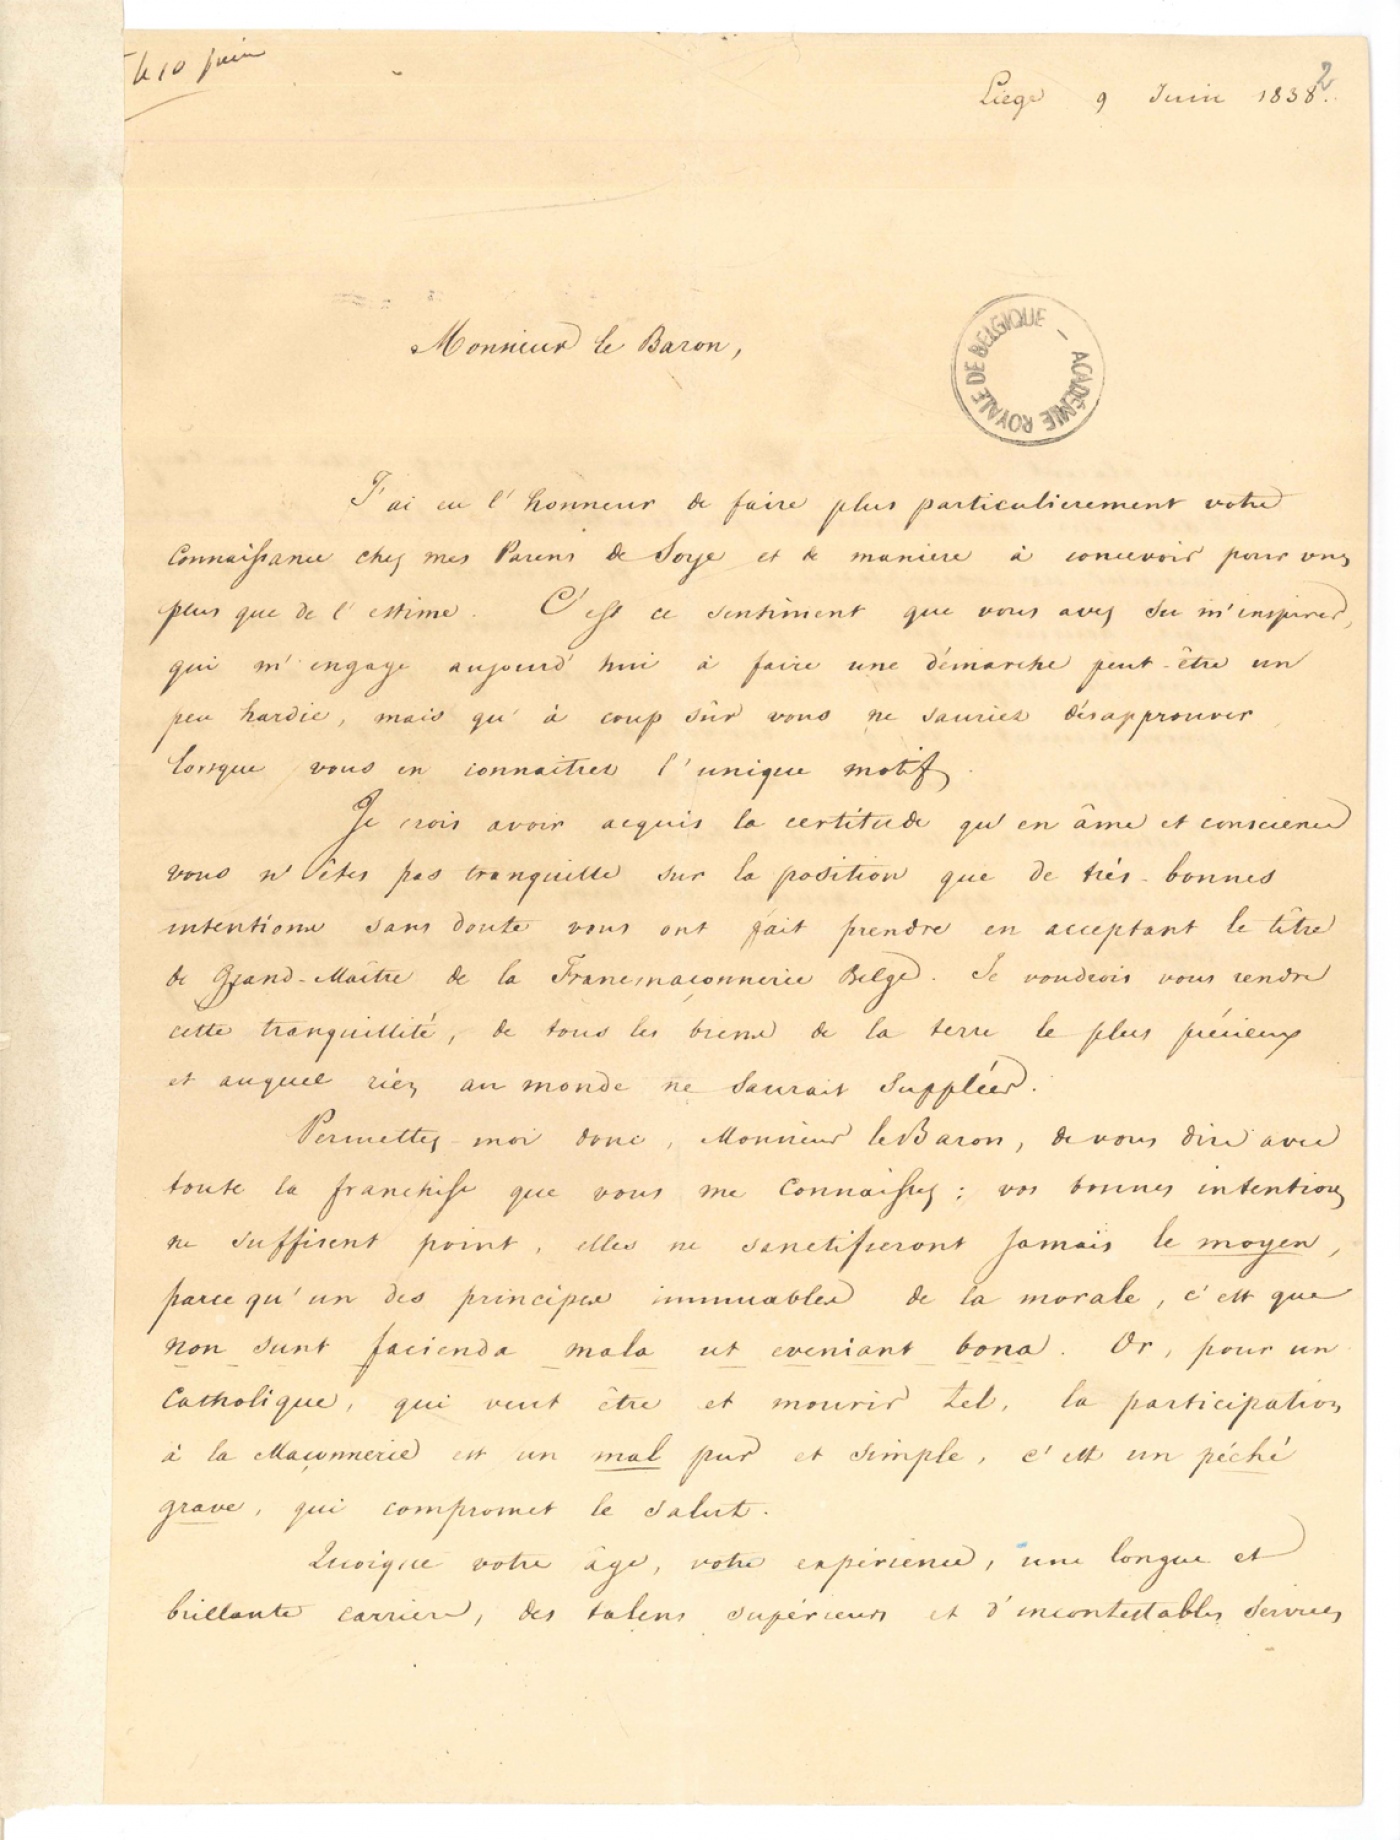 le 10 juin
Liège 9 Juin 1838.
2
Monsieur le Baron,
ACADÉMIE ROYALE DE BELGIQUE –
J'ai eu l'honneur de faire plus particulierement votre
connaissance chez mes Parens de Soye et de maniere à concevoir pour vous
plus que de l'estime. C'est ce sentiment que vous avez su m'inspirer,
qui m'engage aujourd'hui à faire une démarche peut-être un
peu hardie, mais qu'à coup sûr vous ne sauriez désapprouver
lorsque vous en connaitrez l'unique motif.
Je crois avoir acquis la certitude qu'en âme et conscience
vous n'êtes pas tranquille sur la position que de très-bonnes
intentions sans doute vous ont fait prendre en acceptant le titre
de Grand-Maître de la Francmaçonnerie Belge. Je voudrois vous rendre
cette tranquillité, de tous les biens de la terre le plus précieux
et auquel rien au monde ne saurait suppléer.
Permettez-moi donc, Monsieur le Baron, de vous dire avec
toute la franchise que vous me connaissez: vos bonnes intentions
ne suffisent point, elles ne sanctifieront jamais le moyen,
parce qu'un des principes immuables de la morale, c'est que
non sunt facienda mala ut eveniant bona. Or, pour un
Catholique, qui veut être et mourir tel, la participation
à la Maçonnerie est un mal pur et simple, c'est un péché
grave, qui compromet le salut.
Quoique votre âge, votre expérience, une longue et
brillante carriere, des talens supérieurs et d'incontestables services